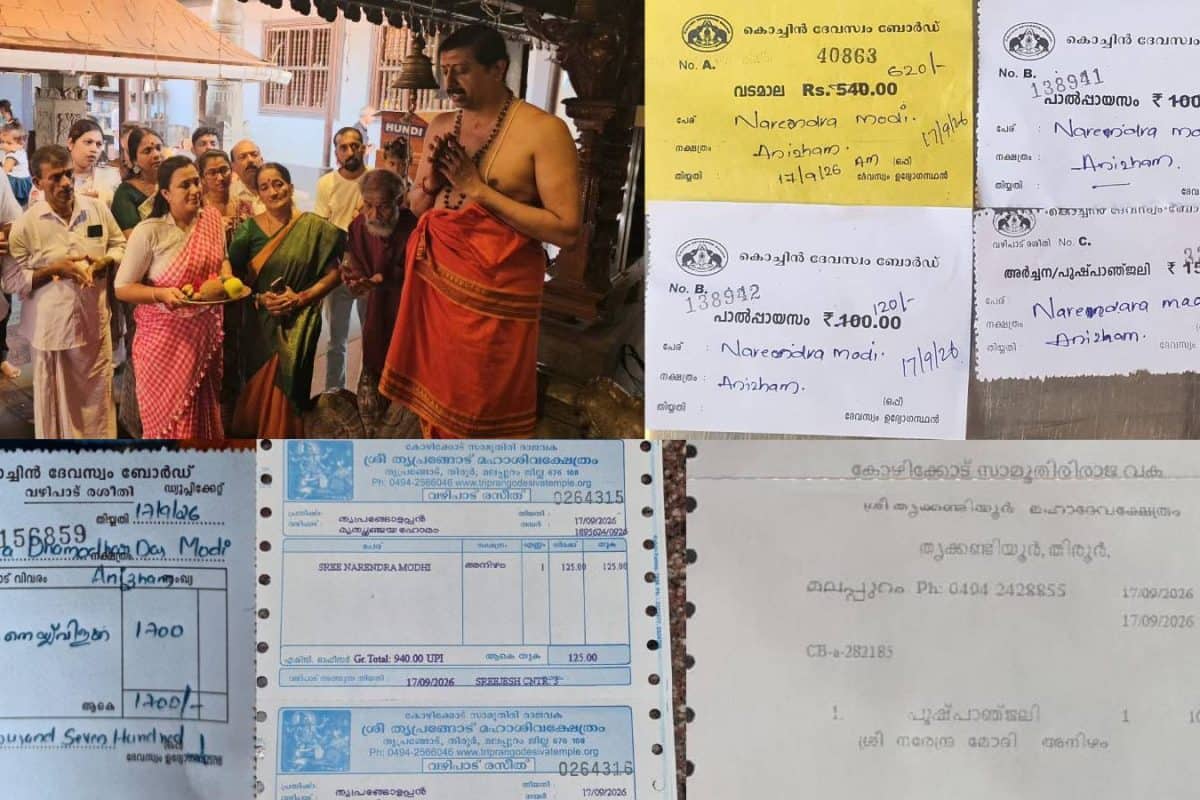 HUNDI
കൊച്ചിൻ ദേവസ്വം ബോർഡ്
No. A. 40863
620/-
വടമാല Rs. 540.00
പേര് : Narendra modi.
17/9/26
നക്ഷത്രം : Anizham.
(ഒപ്പ്)
തിയ്യതി : 17/9/26 ദേവസ്വം ഉദ്യോഗസ്ഥൻ
കൊച്ചിൻ ദേവസ്വം
No. B. 138941
പാൽപ്പായസം ₹ 100
പേര് : Narendra mo
നക്ഷത്രം : Anizham.
തിയ്യതി :
കൊച്ചിൻ ദേവസ്വം ബോർഡ്
No. B. 138942
120/-
പാൽപ്പായസം ₹ 100.00
പേര് : Narendra modi.
17/9/26
നക്ഷത്രം : Anizham.
(ഒപ്പ്)
തിയ്യതി : ദേവസ്വം ഉദ്യോഗസ്ഥൻ
വഴിപാട് രശീതി No. C.
അർച്ചന/പുഷ്പാഞ്ജലി ₹ 15
പേര് : Narendara mod
നക്ഷത്രം : Anizham.
തിയ്യതി :
കൊച്ചിൻ ദേവസ്വം ബോർഡ്
വഴിപാട് രശീതി ഡ്യൂപ്ലിക്കേറ്റ്
തിയ്യതി 17/9/26
156859
Dhamodhar Das Modi
വിവരം Anizham
നെയ്യ് വിളക്ക് 1700
ആകെ 1700/-
Seven Hundred
ദേവസ്വം
കോഴിക്കോട് സാമൂതിരി രാജവക
ശ്രീ തൃപ്രങ്ങോട് മഹാശിവക്ഷേത്രം
തൃപ്രങ്ങോട്, തിരൂർ, മലപ്പുറം ജില്ല 676 108
Ph: 0494-2566046 www.triprangodesivatemple.org
വഴിപാട് രസീത് 0264315
തൃപ്രങ്ങോട്ടപ്പൻ 17/09/2026
മൃത്യുഞ്ജയ ഹോമം 1895624/0926
പേര് നക്ഷത്രം എണ്ണം നിരക്ക് തുക
SREE NARENDRA MODHI അനിഴം 1 125.00 125.00
Gr.Total: 940.00 UPI ആകെ തുക 125.00
17/09/2026 SREEJESH CNTR
കോഴിക്കോട് സാമൂതിരി രാജവക
ശ്രീ തൃപ്രങ്ങോട് മഹാശിവക്ഷേത്രം
തൃപ്രങ്ങോട്, തിരൂർ, മലപ്പുറം ജില്ല 676 108
Ph: 0494-2566046 www.triprangodesivatemple.org
വഴിപാട് രസീത് 0264316
തൃപ്രങ്ങോട്ടപ്പൻ 17/09/2026
കോഴിക്കോട് സാമൂതിരിരാജ വക
ശ്രീ തൃക്കണ്ടിയൂർ മഹാദേവക്ഷേത്രം
തൃക്കണ്ടിയൂർ, തിരൂർ,
മലപ്പുറം Ph: 0494 2428855 17/09/2026
17/09/2026
CB-a-282185
1. പുഷ്പാഞ്ജലി 1
ശ്രീ നരേന്ദ്ര മോദി അനിഴം